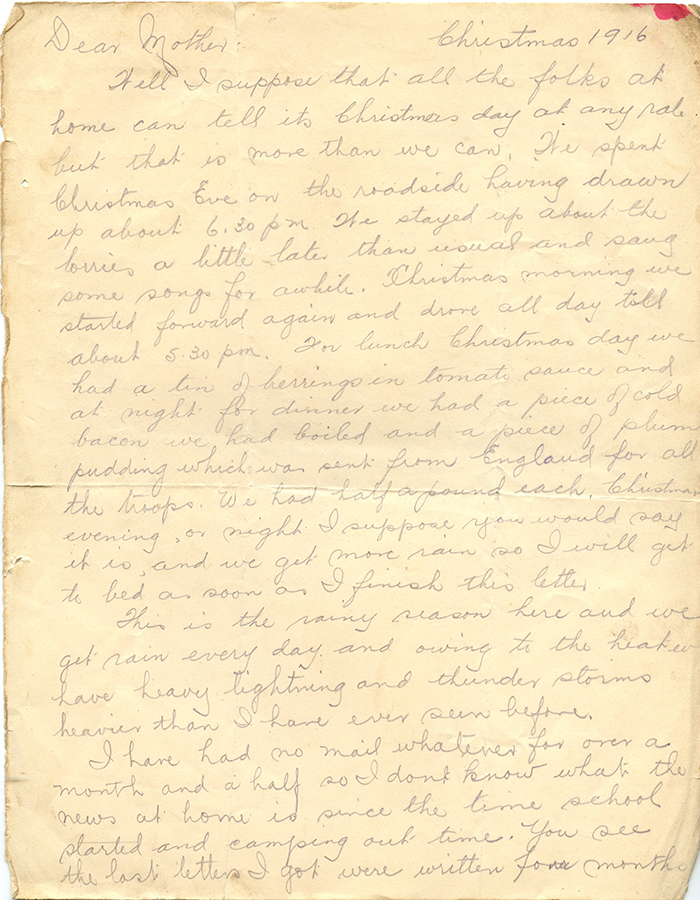 Dear Mother: Christmas 1916
Well I suppose that all the folks at
home can tell its Christmas day at any rate
but that is more than we can. We spent
Christmas Eve on the roadside having drawn
up about 6.30 pm. We stayed up about the
lorries a little later than usual and sang
some songs for awhile. Christmas morning we
started forward again and drove all day till
about 5.30 pm. For lunch Christmas day we
had a tin of herrings in tomato sauce and
at night for dinner we had a piece of cold
bacon we had boiled and a piece of plum
pudding which was sent from England for all
the troops. We had half a pound each. Christmas
evening, or night I suppose you would say
it is, and we get more rain so I will get
to bed as soon as I finish this letter.
This is the rainy season here and we
get rain every day and owing to the heat we
have heavy lightning and thunder storms
heavier than I have ever seen before.
I have had no mail whatever for over a
month and a half so I dont know what the
news at home is since the time school
started and camping out time. You see
the last letters I got were written four months